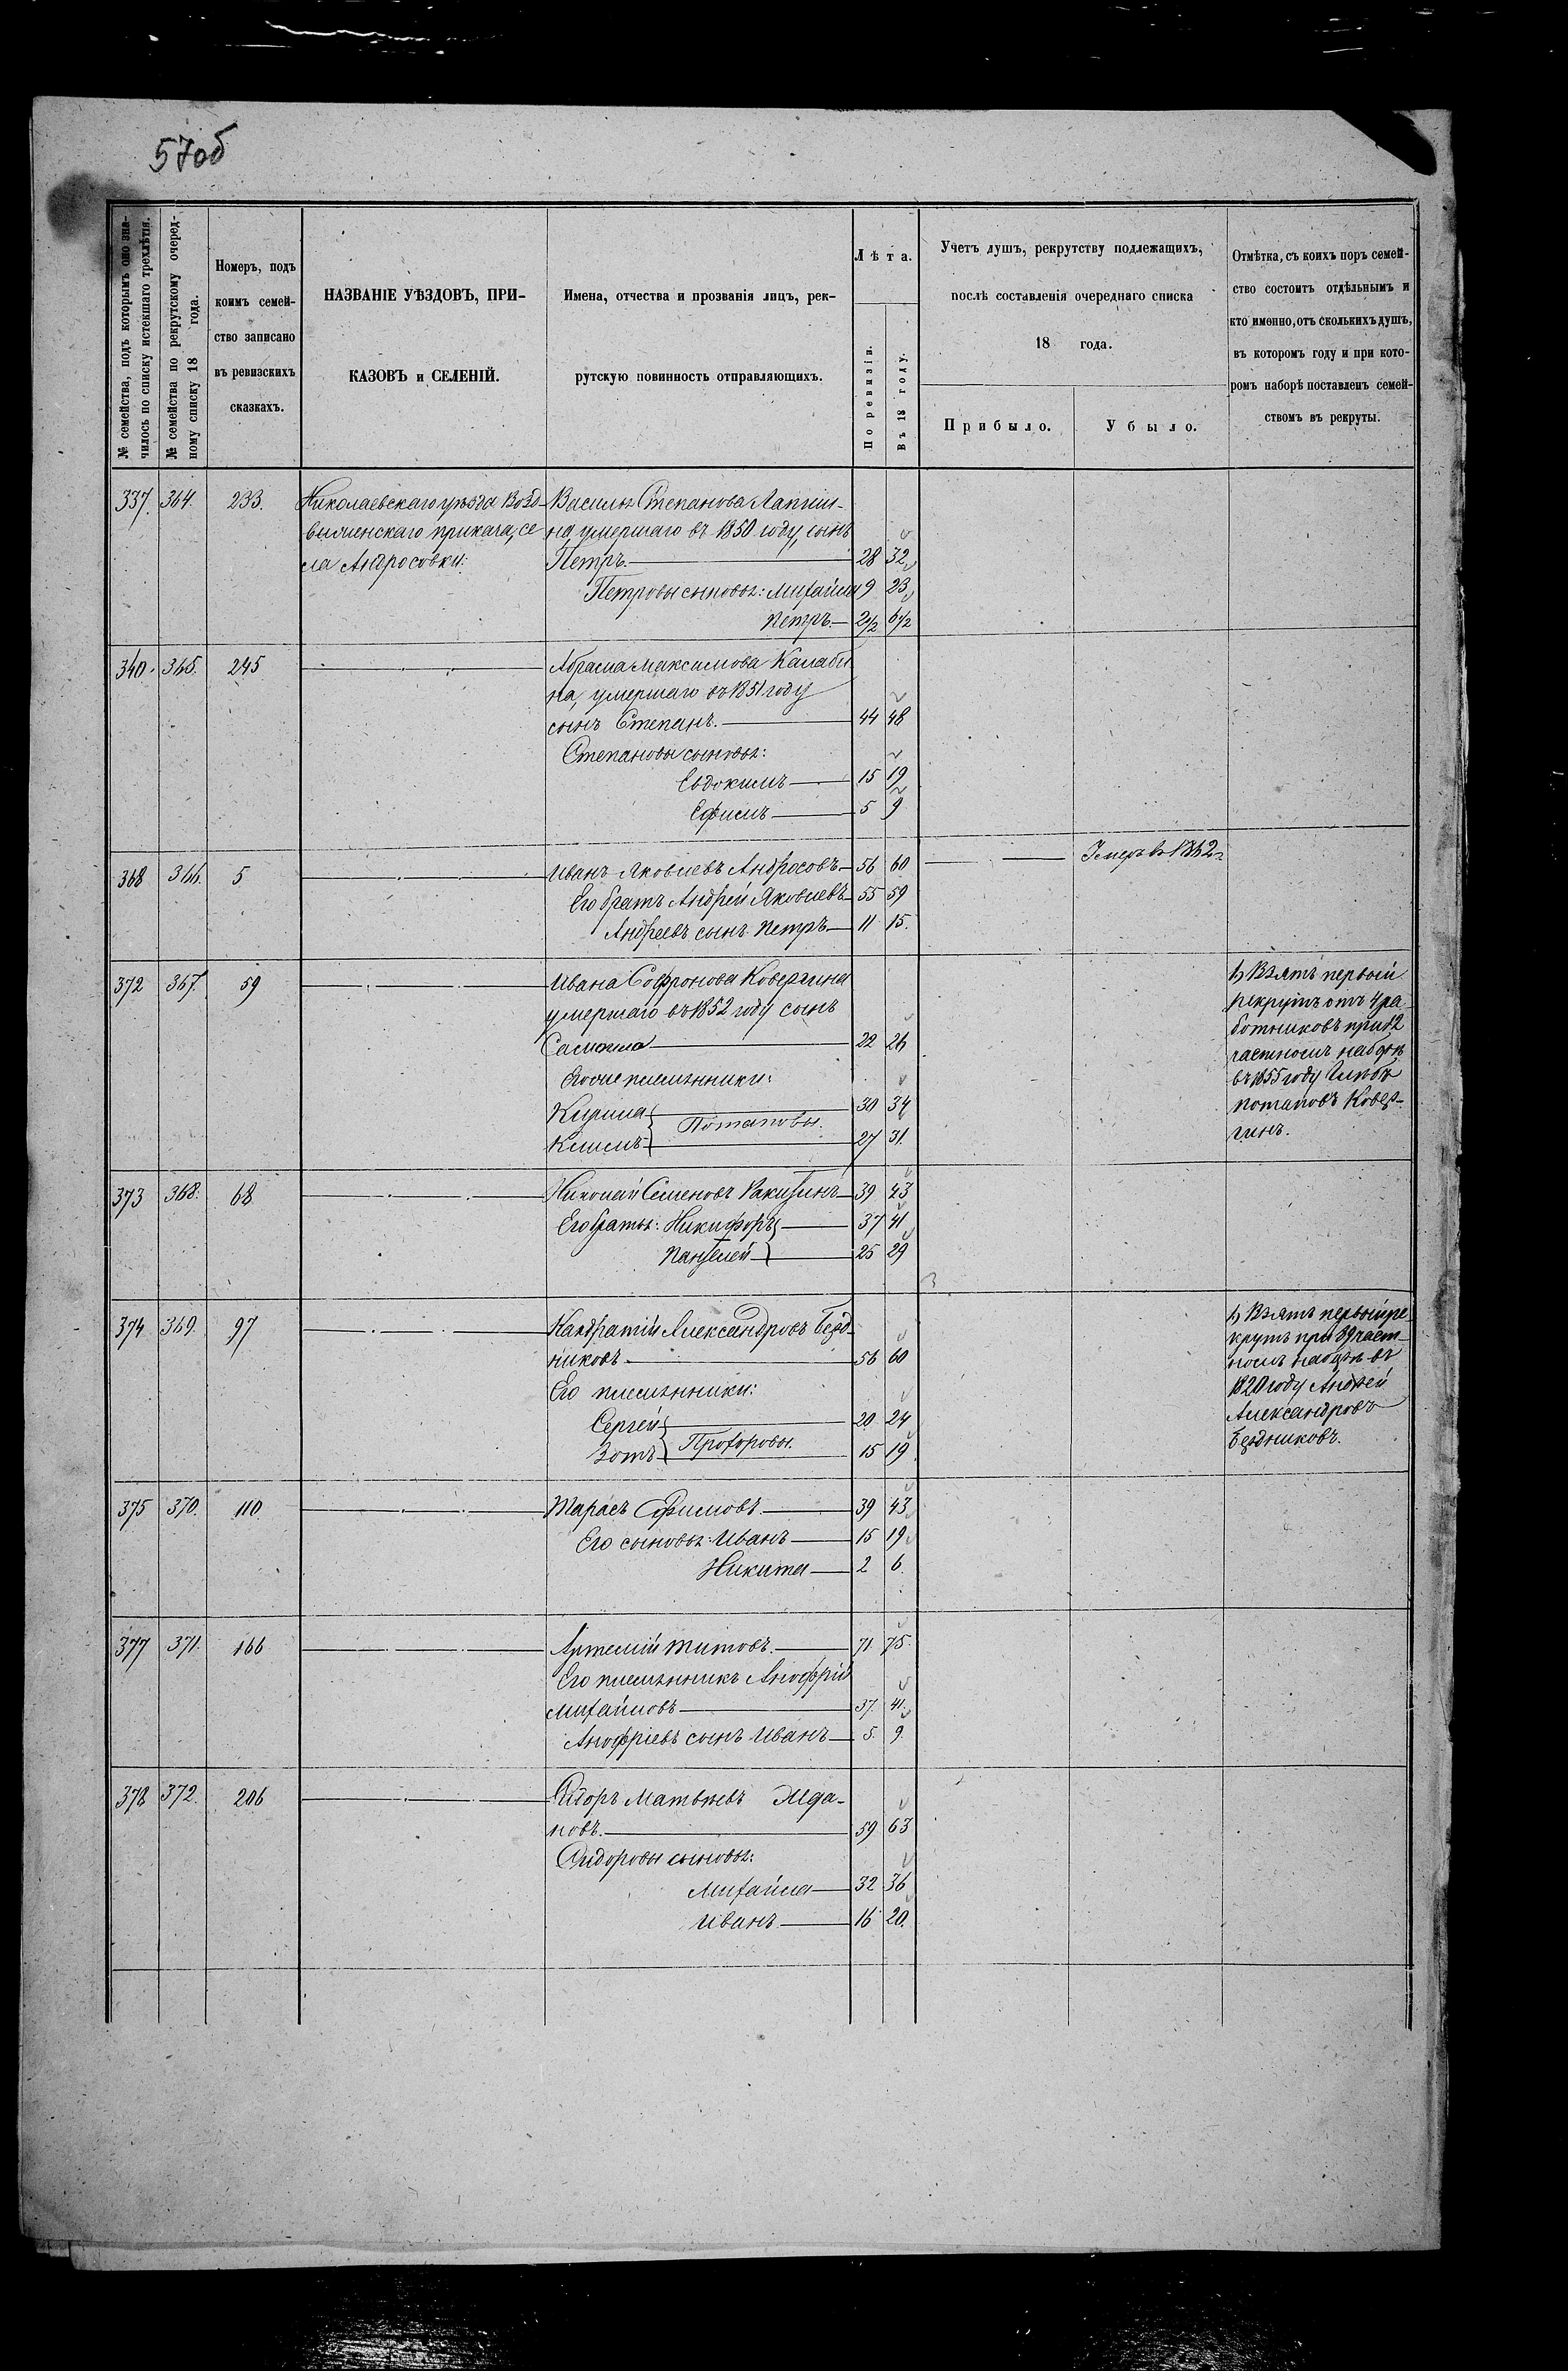 570б
№ семейства, подъ которымъ оно зна-
чилось по списку истекшаго трехлѣтія.
№ семейства по рекрутскому очеред-
ному списку 18 года.
Номеръ, подъ
коимъ семей-
ство записано
въ ревизскихъ
сказкахъ.
НАЗВАНІЕ УѢЗДОВЪ, ПРИ-
КАЗОВЪ и СЕЛЕНІЙ.
Имена, отчества и прозванія лицъ, рек-
рутскую повинность отправляющихъ.
Лѣта.
По ревизіи.
Въ 18 году.
Учетъ душъ, рекрутству подлежащихъ,
послѣ составленія очереднаго списка
18 года.
Прибыло.
Убыло.
Отмѣтка, съ коихъ поръ семей-
ство состоитъ отдѣльнымъ и
кто именно, отъ сколькихъ душъ,
въ которомъ году и при кото-
ромъ наборѣ поставленъ семей-
ствомъ въ рекруты.
337. 364. 233. Николаевскаго уѣзда Возд- Василья Степанова Лапши-
виженскаго приказа, се на, умершаго въ 1850 году, сынъ
ла Андросовки: Петръ. 28 32
Петровы сыновья: Михайла 9 23
Петръ 2½ 6½
340. 365. 245 Абрама Максимова Калаби
на, умершаго въ 1851 году
сынъ Степанъ. 44 48
Степановы сыновья:
Евдокимъ 15 19
Ефимъ 5 9
368 366. 5 Иванъ Яковлевъ Андросовъ 56 60 Умеръ въ 1862 г
Его братъ Андрей Яковлевъ 55 59
Андреевъ сынъ Петръ 11 15.
372 367. 59 Ивана Софронова Ковергина
умершаго въ 1852 году сынъ
Самойла 22 26
племянники:
Кирила 30 34
Потаповы.
Климъ 27 31.
1, Взятъ первый
рекрутъ отъ 4 ра
ботниковъ при 12
частномъ наборѣ
въ 1855 году Глѣбъ
Потаповъ Ковер-
гинъ.
373 368. 68 Николай Семеновъ Ракитинъ 39 43
Его братья: Никифоръ 37 41
Пантелей 25 29
374 369. 97 Кандратій Александровъ Безд
никовъ 56 60
Его племянники:
Сергей 20 24
Прохоровы.
Зотъ 15 19.
1, Взятъ первый ре
крутъ при 89 част-
номъ наборѣ въ
1820 году Андрей
Александровъ
Бездниковъ.
375 370. 110 Тарасъ Ефимовъ 39 43
Его сыновья: Иванъ 15 19
Никита 2 6.
377 371. 166 Артемій Титовъ. 71 75.
Его племянникъ Анофрій
Михайловъ 37. 41.
Анофріевъ сынъ Иванъ 5. 9.
378 372. 206 Сидоръ Матвѣевъ Жда-
новъ. 59 63
Сидоровы сыновья:
Михайла 32 36
Иванъ 16 20.